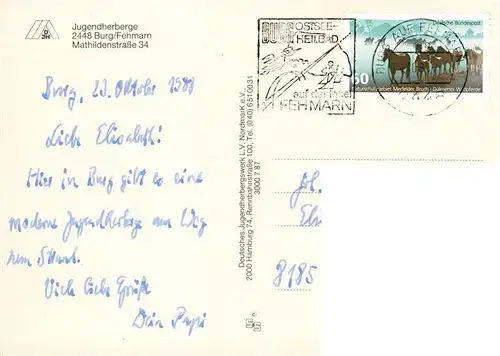 Jugendherberge
2448 Burg/Fehmarn
Mathildenstraße 34
Burg, 23. Oktober 1987
Liebe Elisabeth!
Hier in Burg gibt es eine
moderne Jugendherberge am Weg
zum Strand.
Viele liebe Grüße
Dein Papi
Deutsches Jugendherbergswerk L.V. Nordmark e.V.
2000 Hamburg 74, Rennbahnstraße 100, Tel. (040) 6510031
3000 7 87
BURG OSTSEE-
HEILBAD
auf der Insel
FEHMARN
AUF FEHMARN
Deutsche Bundespost
50
Naturschutzgebiet Merfelder Bruch · Dülmener Wildpferde
Joh.
8185